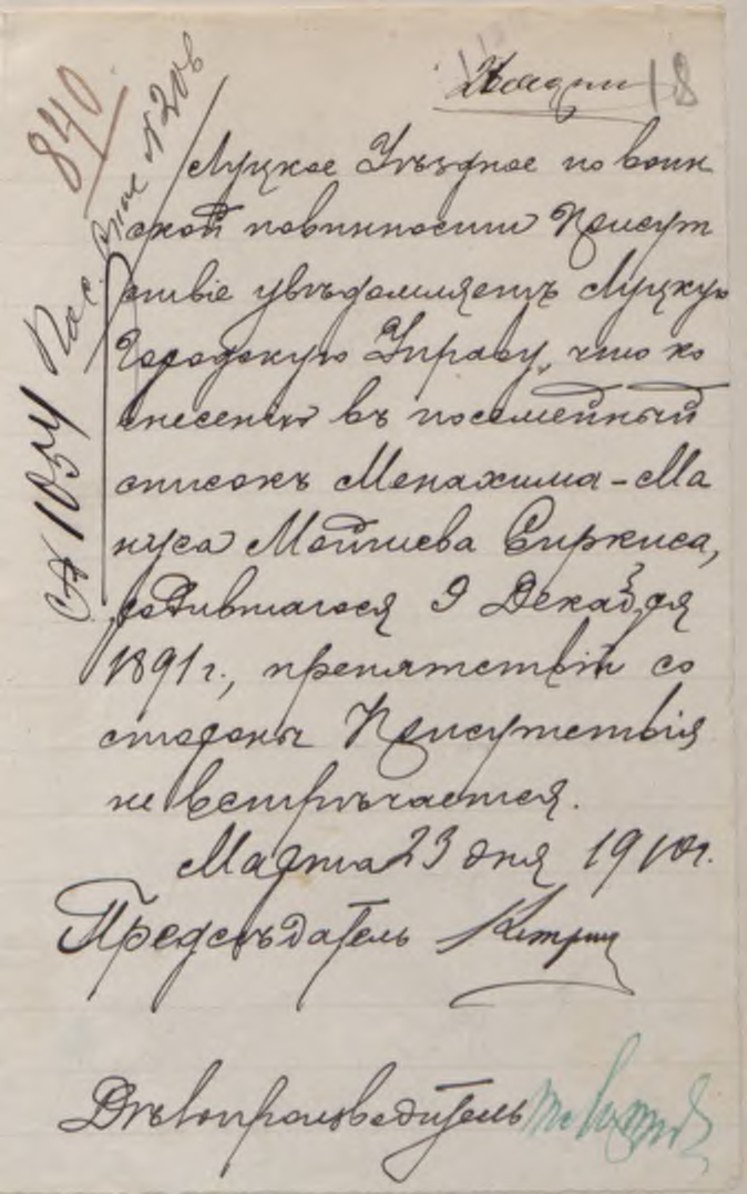 18
840
№ 1054
Луцкое Уѣздное по воин
ской повинности Присут
ствіе увѣдомляетъ Луцкую
Городскую Управу, что ко
внесенію въ посемейный
списокъ Менахима-Ма
нуса Мошкева Сиркиса,
родившагося 9 Декабря
1891 г., препятствій со
стороны Присутствія
не встрѣчается.
Марта 23 дня 1910 г.
Предсѣдатель
Дѣлопроизводитель